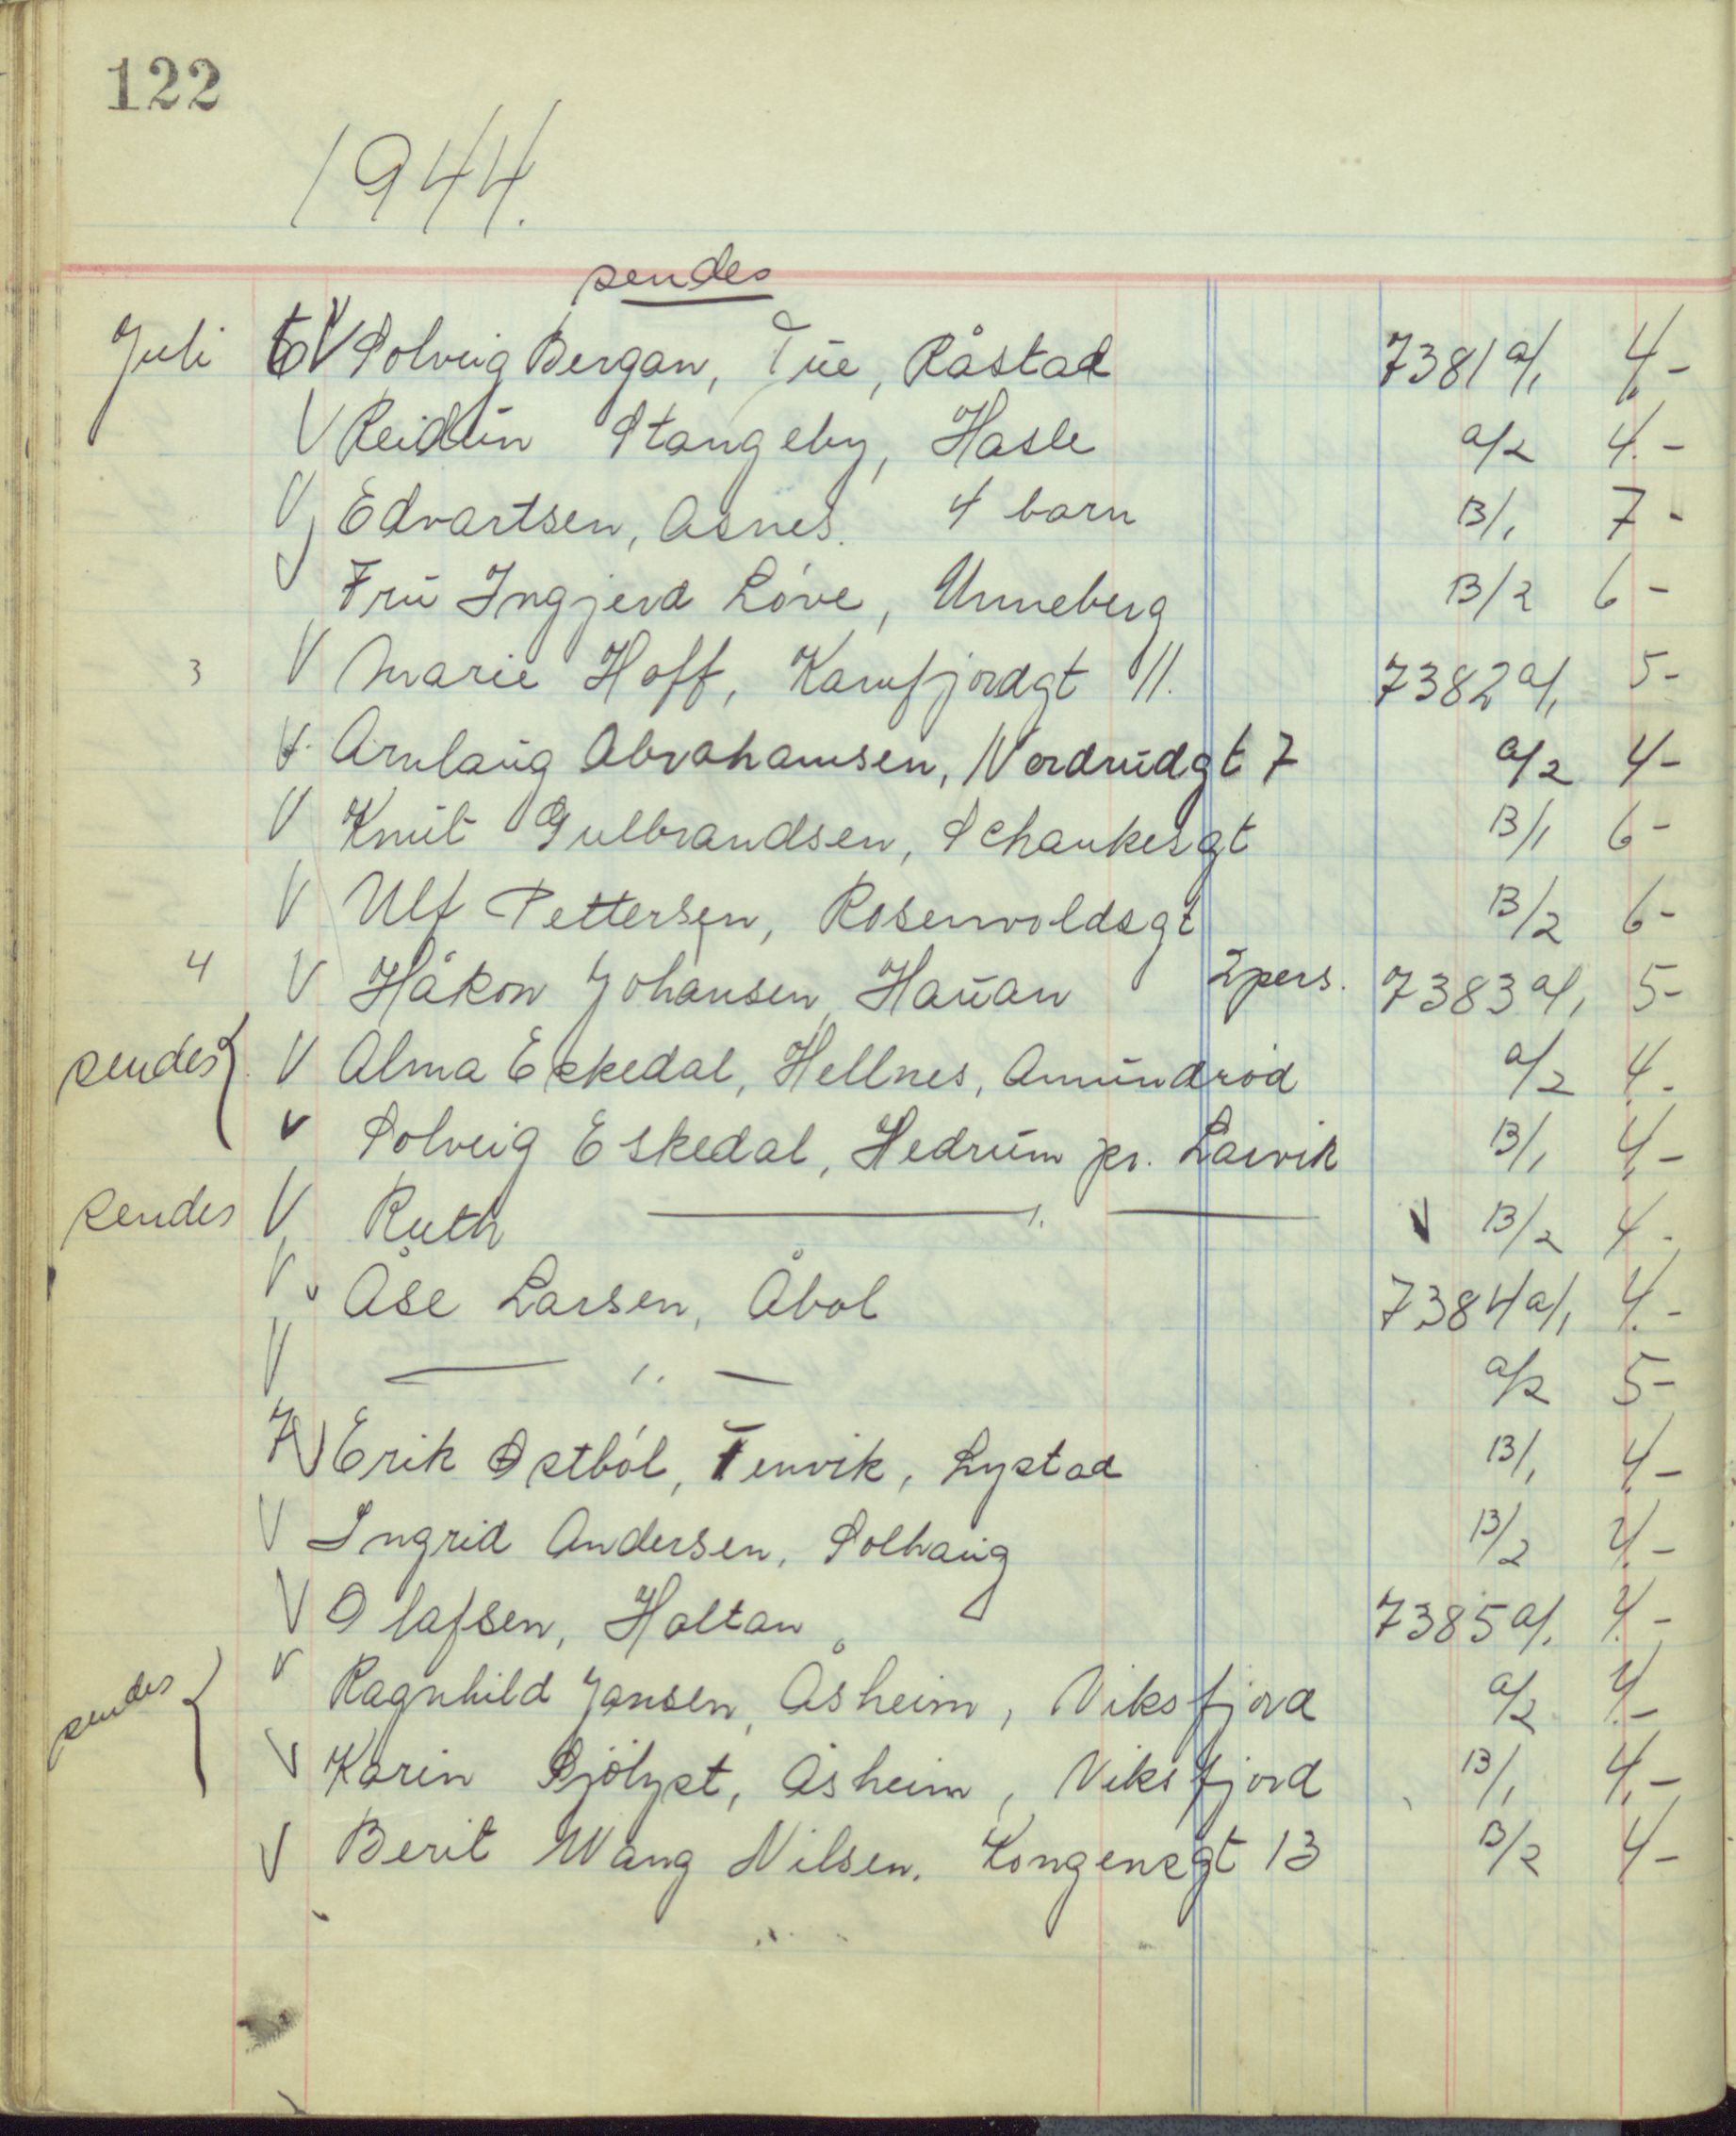 122
1944.
sendes
Juli V Solveig Bergan, Tue, Råstad 7381 a/1 4,-
V Reidun Stangeby, Hasle a/2 4.-
V Edvartsen, Asnes. 4 barn B/1 7-
V Fru Ingjerd Löve, Unneberg B/2 6-
3 V Marie Hoff, Kamfjordgt 11. 7382 a/1 5-
V Arnlaug Abrahamsen, Nordrudgt 7 a/2 4-
V Knut Gulbrandsen, Schankesgt B/1 6-
V Ulf Pettersen, Rosenvoldsgt B/2 6-
4 V Håkon Johansen, Hauan 2 pers. 7383 a/1 5-
sendes { V Alma Eskedal, Hellnes, Amundröd a/2 4.-
V Solveig Eskedal, Hedrum pr. Larvik B/1 4,-
sendes V Ruth —— 1. —— V B/2 4-
V Åse Larsen, Åbol 7384 a/1 4.-
V —— 1. — a/2 5-
7 V Erik Östböl, Tenvik, Lystad B/1 4-
V Ingrid Andersen, Solhaug B/2 4.-
V Olafsen, Holtan 7385 a/1 4.-
sendes { V Ragnhild Jansen, Åsheim, Viksfjord a/2 4.-
V Karin Sjölyst, Åsheim, Viksfjord B/1 4,-
V Berit Wang Nilsen. Kongensgt 13 B/2 4-